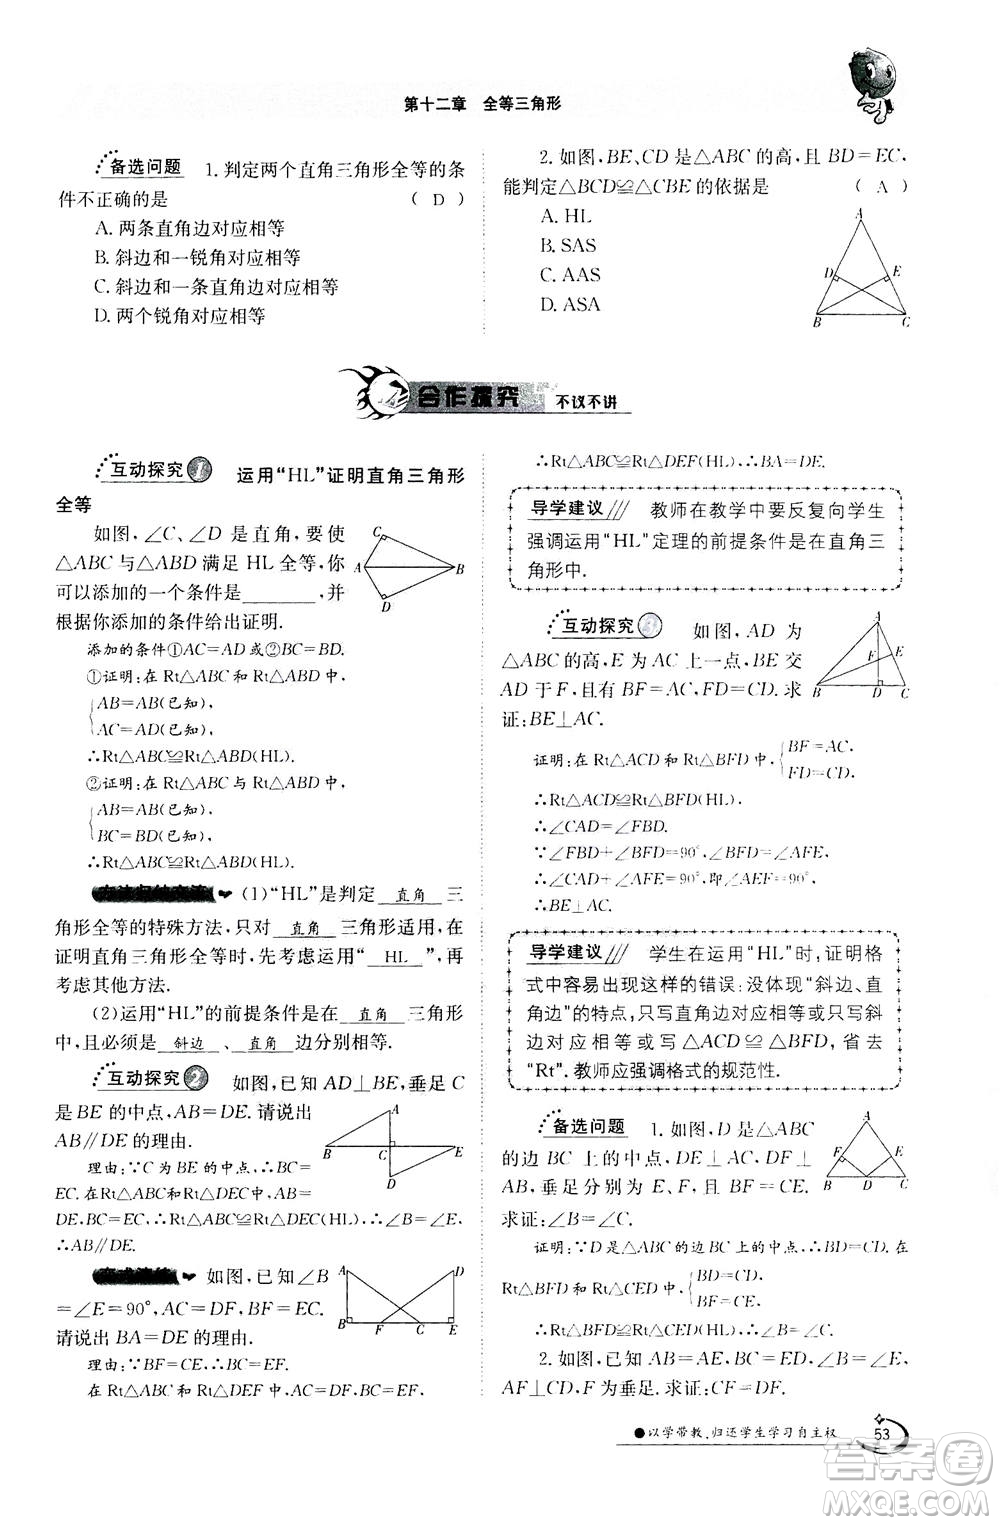 第十二章 全等三角形
备选问题 1.判定两个直角三角形全等的条
件不正确的是 ( D )
A. 两条直角边对应相等
B. 斜边和一锐角对应相等
C. 斜边和一条直角边对应相等
D. 两个锐角对应相等
2. 如图,BE、CD 是△ABC 的高,且 BD=EC,
能判定△BCD≌△CBE 的依据是 ( A )
A. HL
B. SAS
C. AAS
D. ASA
A
D E
B C
合作探究 不议不讲
互动探究 1 运用“HL”证明直角三角形
全等
如图,∠C、∠D 是直角,要使
△ABC 与△ABD 满足 HL 全等,你
可以添加的一个条件是 ,并
根据你添加的条件给出证明.
C
A B
D
添加的条件①AC=AD或②BC=BD.
①证明:在 Rt△ABC 和 Rt△ABD 中,
AB=AB(已知),
AC=AD(已知),
∴Rt△ABC≌Rt△ABD(HL)
②证明:在 Rt△ABC 与 Rt△ABD 中,
AB=AB(已知),
BC=BD(已知),
∴Rt△ABC≌Rt△ABD(HL).
(1)“HL”是判定 直角 三
角形全等的特殊方法,只对 直角 三角形适用,在
证明直角三角形全等时,先考虑运用“ HL ”,再
考虑其他方法.
(2)运用“HL”的前提条件是在 直角 三角形
中,且必须是 斜边 、 直角 边分别相等.
互动探究 2 如图,已知 AD⊥BE,垂足 C
是 BE 的中点,AB=DE. 请说出
AB∥DE 的理由.
A
B C E
D
理由:∵C 为 BE 的中点,∴BC=
EC. 在 Rt△ABC和Rt△DEC 中,AB=
DE,BC=EC,∴Rt△ABC≌Rt△DEC(HL),∴∠B=∠E,
∴AB∥DE.
如图,已知∠B
=∠E=90°,AC=DF,BF=EC.
请说出 BA=DE 的理由.
A D
B F C E
理由:∵BF=CE,∴BC=EF.
在 Rt△ABC 和 Rt△DEF 中,AC=DF,BC=EF,
∴Rt△ABC≌Rt△DEF(HL),∴BA=DE.
导学建议 教师在教学中要反复向学生
强调运用“HL”定理的前提条件是在直角三
角形中.
互动探究 3 如图,AD 为
△ABC的高,E 为 AC 上一点,BE 交
AD 于 F,且有 BF=AC,FD=CD. 求
证:BE⊥AC.
A
F E
B D C
证明:在 Rt△ACD 和 Rt△BFD 中,
BF=AC,
FD=CD.
∴Rt△ACD≌Rt△BFD(HL),
∴∠CAD=∠FBD.
∵∠FBD+∠BFD=90°,∠BFD=∠AFE,
∴∠CAD+∠AFE=90°,即∠AEF=90°.
∴BE⊥AC.
导学建议 学生在运用“HL”时,证明格
式中容易出现这样的错误:没体现“斜边、直
角边”的特点,只写直角边对应相等或只写
斜边对应相等或写△ACD≌△BFD,省去
“Rt”.教师应强调格式的规范性.
备选问题 1. 如图,D 是△ABC
的边 BC 上的中点,DE⊥AC,DF⊥
AB,垂足分别为 E、F,且 BF=CE.
求证:∠B=∠C.
A
F E
B D C
证明:∵D 是△ABC 的边 BC 上的中点,∴BD=CD. 在
Rt△BFD 和Rt△CED 中,
BD=CD,
BF=CE,
∴Rt△BFD≌Rt△CED(HL),∴∠B=∠C.
2. 如图,已知 AB=AE,BC=ED,∠B=∠E,
AF⊥CD,F 为垂足. 求证:CF=DF.
●以学带教、归还学生学习自主权
53
答案圈
MXQE.COM